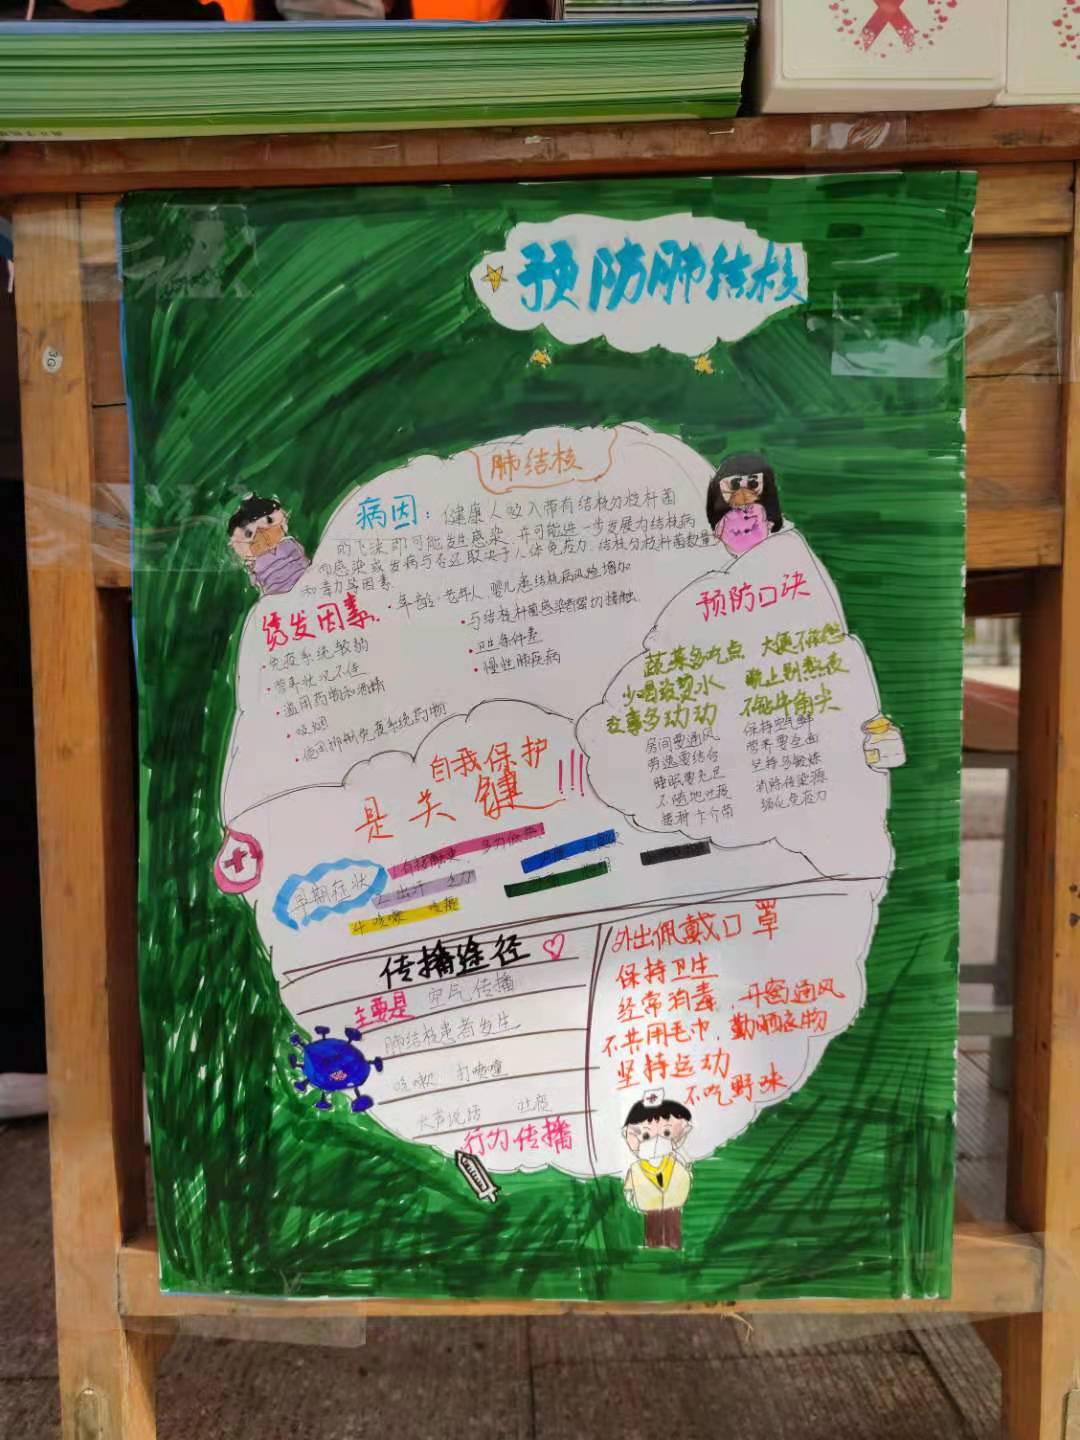 预防肺结核
肺结核
病因：健康人吸入带有结核分枝杆菌
的飞沫即可能发生感染，并可能进一步发展为结核病
感染或发病与否还取决于人体免疫力、结核分枝杆菌数量
和毒力等因素
诱发因素
·年龄：老年人、婴儿患结核病风险增加
·与结核杆菌感染者密切接触
·卫生条件差
·慢性肺疾病
·免疫系统较弱
·营养状况不佳
·滥用药物和酒精
·吸烟
·使用抑制免疫系统药物
预防口诀
蔬菜多吃点 大便不
少喝 水 晚上别熬夜
没事多动动 不钻牛角尖
房间要通风 保持空气鲜
劳逸要结合 营养要全面
睡眠要充足 坚持多锻炼
不随地吐痰 消除传染源
接种卡介苗 强化免疫力
自我保护
是关键!!!
早期症状
出汗 乏力
4 咳嗽 咳痰
传播途径
主要是 空气传播
肺结核患者发生
咳嗽 打喷嚏
大声说话 吐痰
行为传播
外出佩戴口罩
保持卫生
经常消毒，开窗通风
不共用毛巾，勤晒衣物
坚持运动
不吃野味
3G